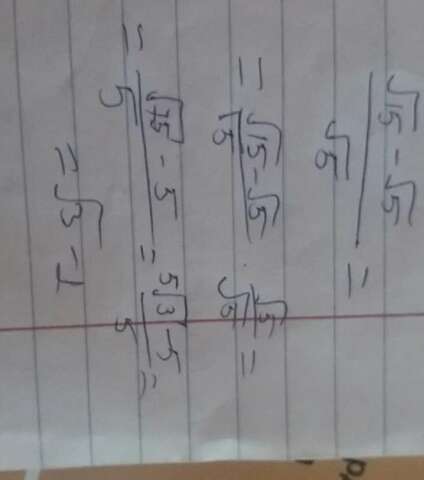 (√15 - √5)/√5 =
= (√15 - √5)/√5 · √5/√5 =
= (√75 - 5)/5 = (5√3 - 5)/5 =
= √3 - 1